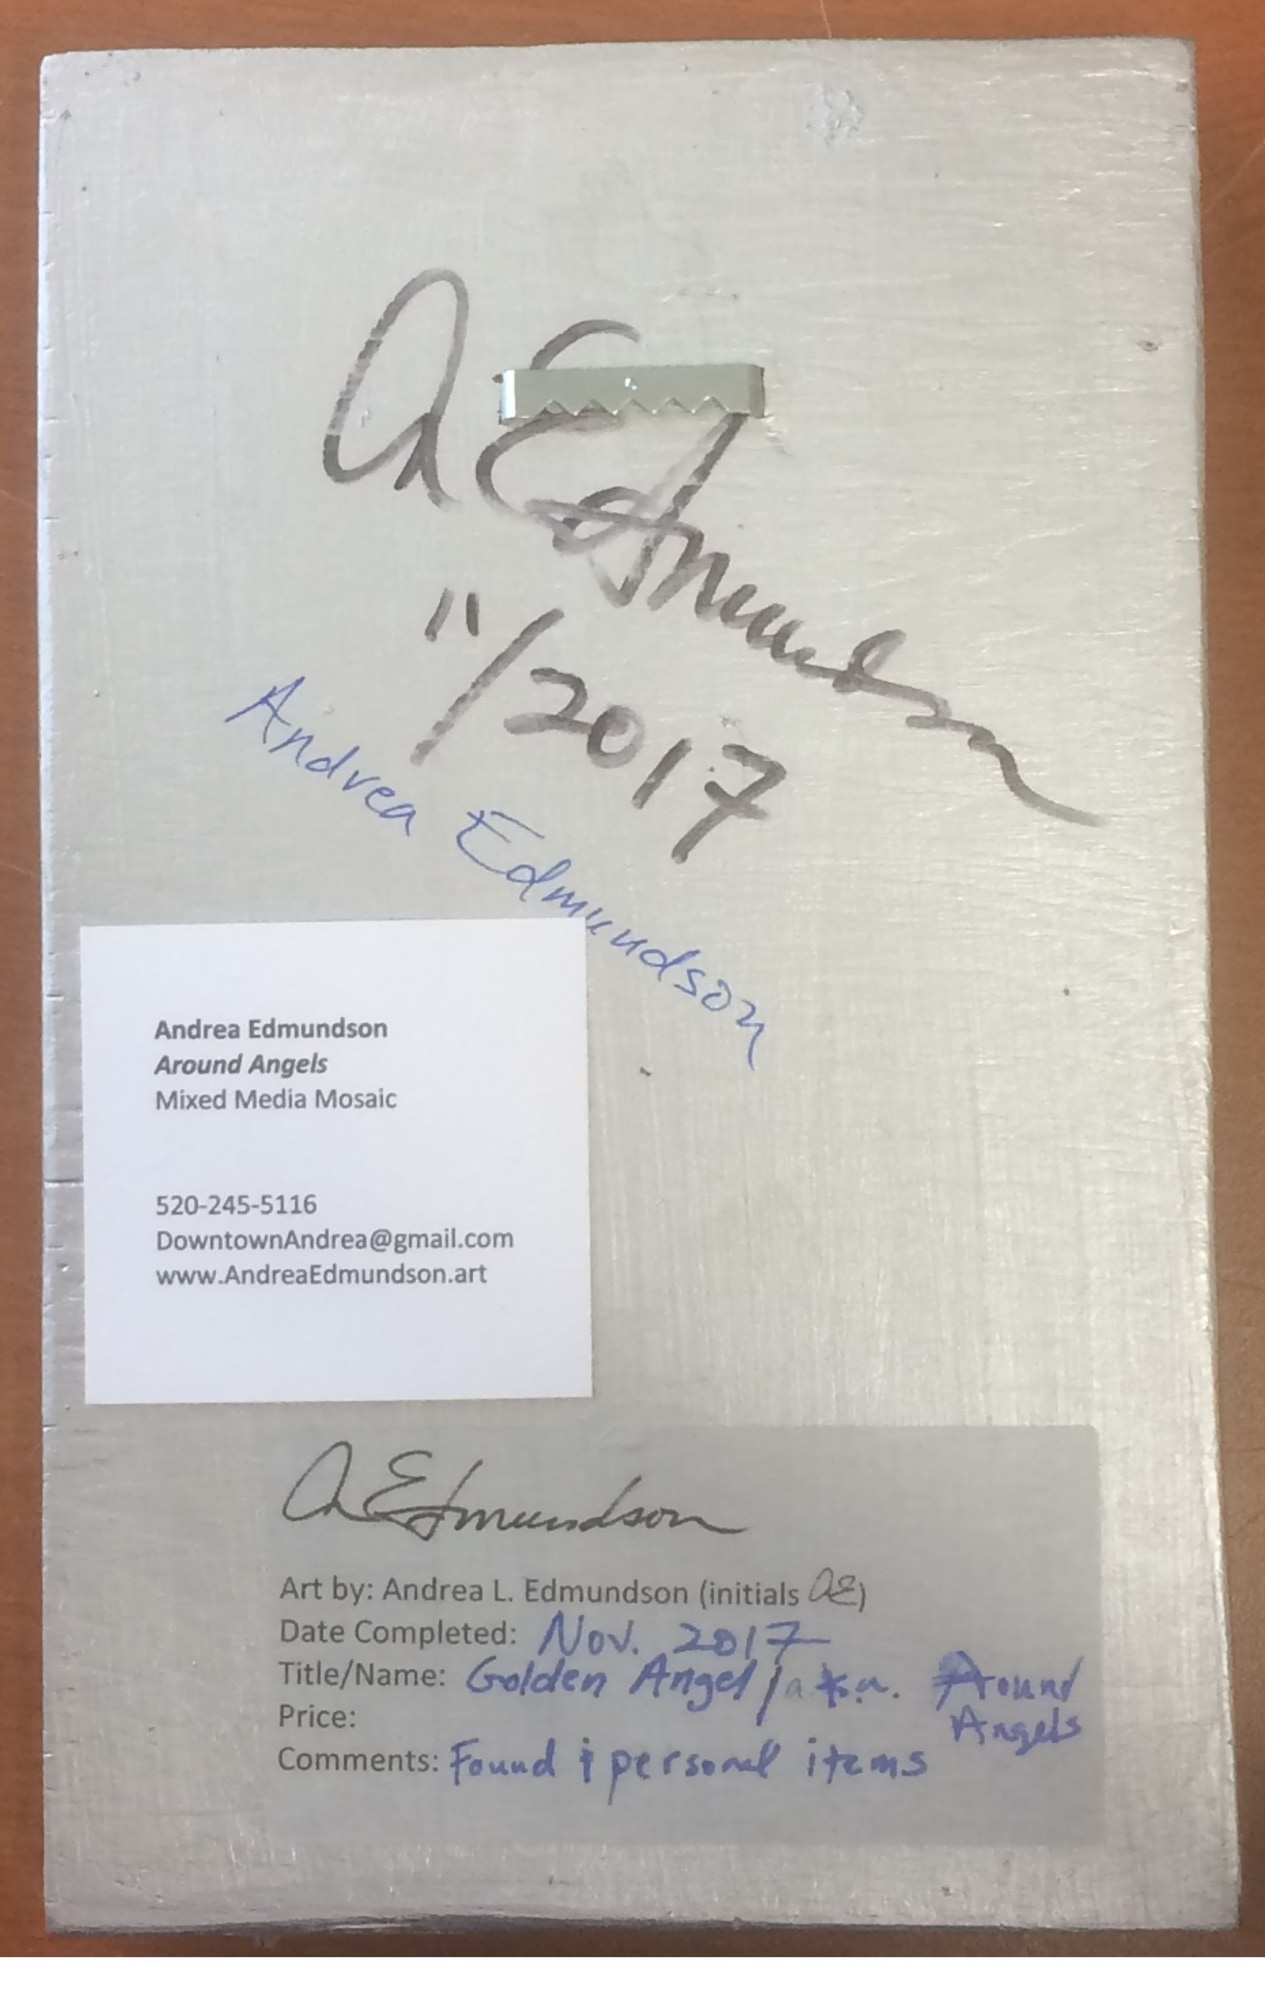 A Edmundson
11/2017
Andrea Edmundson
Andrea Edmundson
Around Angels
Mixed Media Mosaic
520-245-5116
DowntownAndrea@gmail.com
www.AndreaEdmundson.art
A Edmundson
Art by: Andrea L. Edmundson (initials AE)
Date Completed: Nov. 2017
Title/Name: Golden Angel / a.k.a. Around
Angels
Price:
Comments: Found & personal items